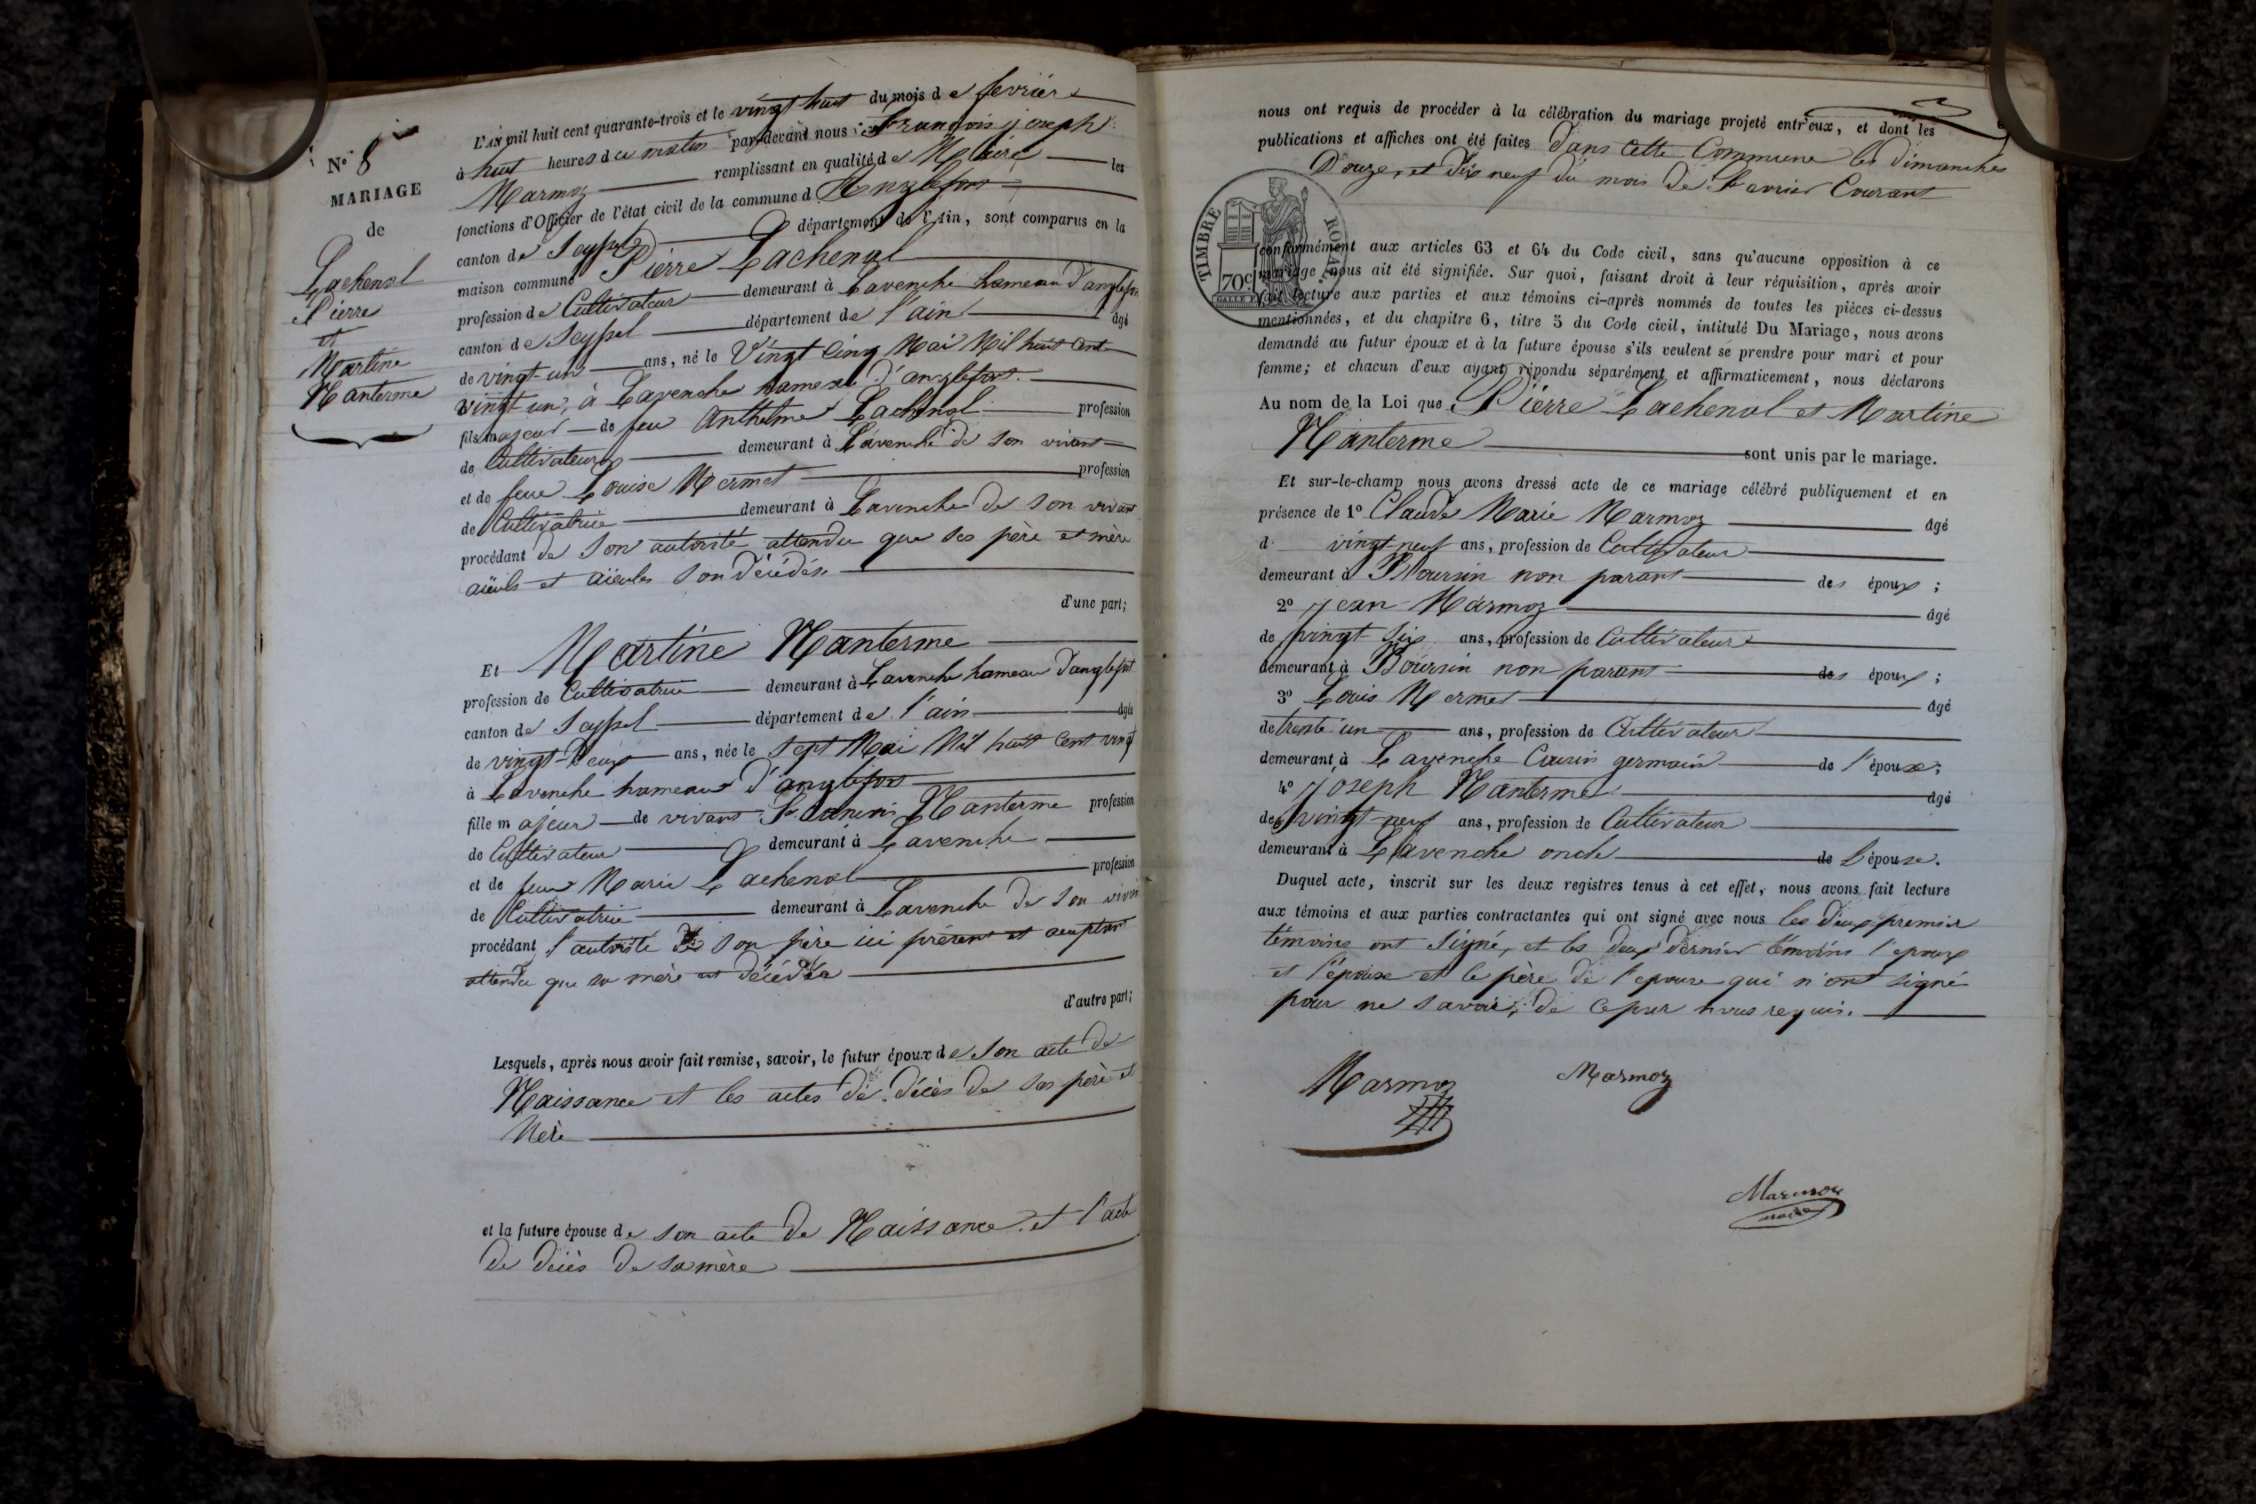 N.º 8
MARIAGE
de
Lachenal
Pierre
et
Martine
Nanterme
L'an mil huit cent quarante-trois et le vingt huit du mois de fevrier
à huit heures du matin par-devant nous François joseph
Marmoz remplissant en qualité de Maire les
fonctions d'Officier de l'état civil de la commune d'Anglefort
canton de Seyssel département de l'Ain, sont comparus en la
maison commune Pierre Lachenal
profession de Cultivateur demeurant à Lavenche hameau d'anglefort
canton de Seyssel département de l'ain âgé
de vingt-un ans, né le Vingt Cinq Mai Mil huit Cent
vingt un, à Lavenche hameau d'anglefort
fils majeur de feu Anthelme Lachenal profession
de Cultivateur demeurant à Lavenche de son vivant
et de feue Louise Mermet profession
de Cultivatrice demeurant à Lavenche de son vivant
procédant de son autorité attendu que ses père et mère
aïeuls et aïeules son décédés
d'une part;
Et Martine Nanterme
profession de Cultivatrice demeurant à Lavenche hameau d'anglefort
canton de Seyssel département de l'ain âgée
de vingt-deux ans, née le sept Mai Mil huit Cent vingt
à Lavenche hameau d'anglefort
fille majeur de vivant Nanterme profession
de Cultivateur demeurant à Lavenche
et de feue Marie Lachenal profession
de Cultivatrice demeurant à Lavenche de son vivant
procédant l'autorité de son père ici présent et acceptant
attendu que sa mère est décédée
d'autre part;
Lesquels, après nous avoir fait remise, savoir, le futur époux de son acte de
Naissance et les actes de décès de ses père et
Mère
et la future épouse de son acte de Naissance et l'acte
de décès de sa mère
nous ont requis de procéder à la célébration du mariage projeté entr'eux, et dont les
publications et affiches ont été faites dans cette Commune les dimanches
Douze, et dix neuf du mois de fevrier Courant
TIMBRE ROYAL.
70c
conformément aux articles 63 et 64 du Code civil, sans qu'aucune opposition à ce
mariage nous ait été signifiée. Sur quoi, faisant droit à leur réquisition, après avoir
fait lecture aux parties et aux témoins ci-après nommés de toutes les pièces ci-dessus
mentionnées, et du chapitre 6, titre 5 du Code civil, intitulé Du Mariage, nous avons
demandé au futur époux et à la future épouse s'ils veulent se prendre pour mari et pour
femme; et chacun d'eux ayant répondu séparément et affirmativement, nous déclarons
Au nom de la Loi que Pierre Lachenal et Martine
Nanterme sont unis par le mariage.
Et sur-le-champ nous avons dressé acte de ce mariage célébré publiquement et en
présence de 1º Claude Marie Marmoz âgé
d vingt-neuf ans, profession de Cultivateur
demeurant à Boursin non parant des époux;
2º Jean Marmoz âgé
de vingt-six ans, profession de Cultivateur
demeurant à Boursin non parant des époux;
3º Louis Mermet âgé
de trente un ans, profession de Cultivateur
demeurant à Lavenche Cousin germain de l'époux;
4º Joseph Nanterme âgé
de vingt-neuf ans, profession de Cultivateur
demeurant à Lavenche oncle de l'épouse.
Duquel acte, inscrit sur les deux registres tenus à cet effet, nous avons fait lecture
aux témoins et aux parties contractantes qui ont signé avec nous les deux premier
témoins ont signé, et les deux dernier témoins l'epoux
et l'épouse et le père de l'epouse qui n'ont signé
pour ne savoir, de ce par nous requis.
Marmoz Marmoz
Marmoz
maire